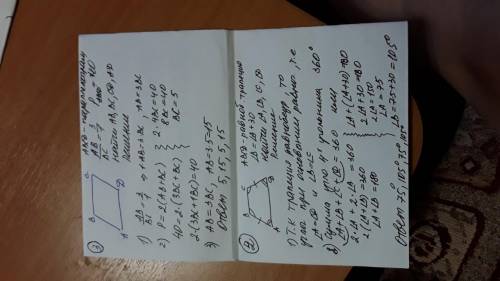 ①
B C
A D
ABCD - параллелограм
AB/BC = 3/1 P ABCD = 40
найти AB, BC, CD, AD
Решение
1) AB/BC = 3/1 ⇒ AB = 3BC
2) P = 2(AB+BC)
40 = 2·(3BC+BC)
2·(3BC+BC) = 40
2·4BC = 40
8BC = 40
BC = 5
3) AB = 3BC, AB = 3·5 = 15
Ответ 5, 15, 5, 15
②
B C
A D
ABCD - равноб трапеция
∠B = ∠A+30
найти ∠A, ∠B, ∠C, ∠D
Решение
1) Т.К трапеция равнобедр, то
углы при основании равны, т.е
∠A = ∠D и ∠B = ∠C
2) Сумма углов 4х угольника 360°
∠A+∠B+∠C+∠D = 360 или
2·∠A+2·∠B = 360
2(∠A+∠B) = 360
∠A+∠B = 180
∠A+(∠A+30) = 180
2∠A+30 = 180
2∠A = 150
∠A = 75
∠B = 75+30 = 105°
Ответ 75°, 105°, 75°, 105°